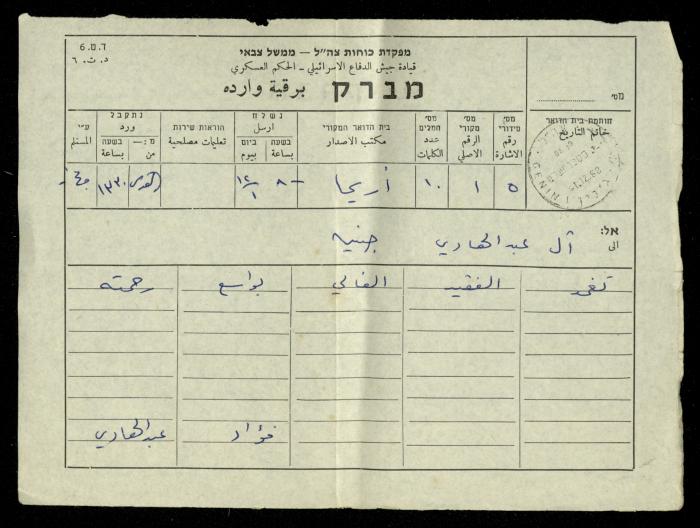 ד.ס.6
د.ت.٦
מפקדת כוחות צה"ל — ממשל צבאי
قيادة جيش الدفاع الاسرائيلي - الحكم العسكري
מברק برقية وارده
מס'
חותמת-בית הדואר
خاتم التاريخ
מס' סידורי
رقم الاشارة
מס' מקורי
الرقم الاصلي
מס' המלים
عدد الكلمات
בית הדואר המקורי
مكتب الاصدار
נשלח
ارسل
בשעה
بساعة
ביום
بيوم
הוראות שירות
تعليمات مصلحية
נתקבל
ورد
מ:—
من
בשעה
بساعة
ע"י
المستلم
JENIN
٥ ١ ١٠ أريحا ٨ ١٢/١ القدس ١٣٣٠
אל:
الى
آل عبد الهادي جنين
تغمد الفقيد الغالي بواسع رحمته
فؤاد عبد الهادي